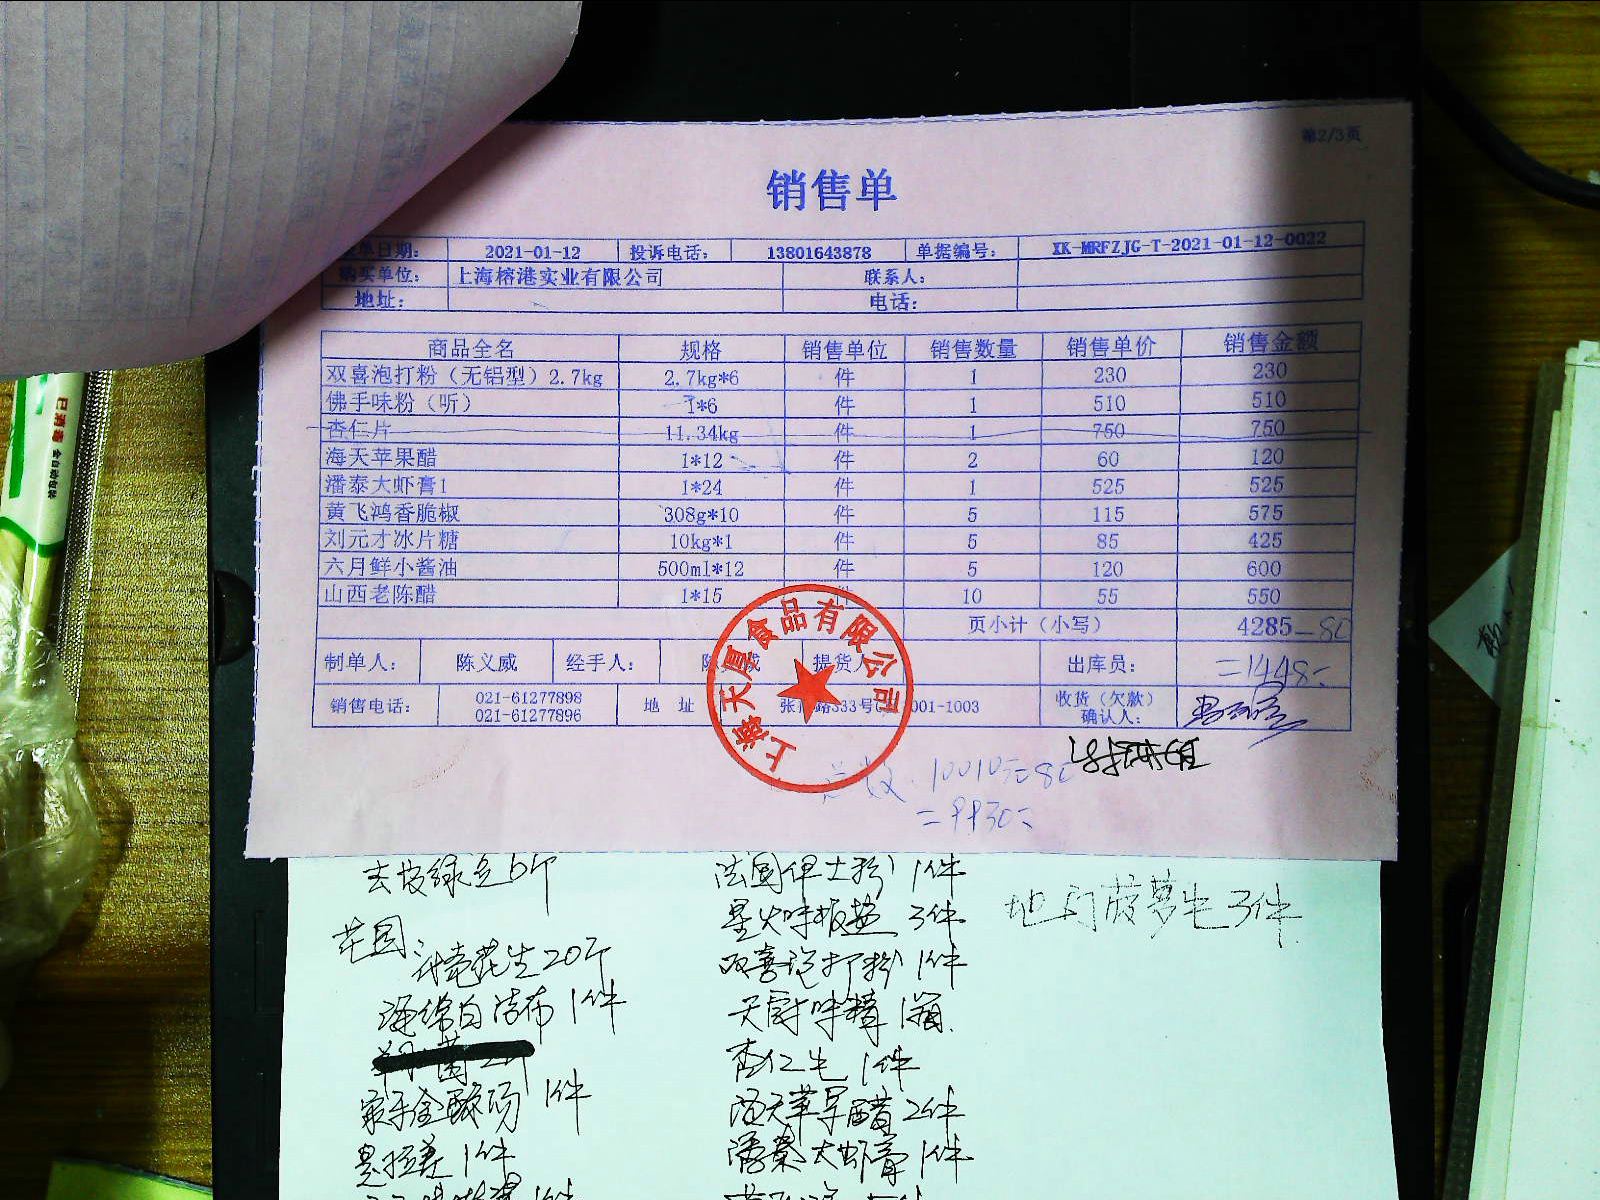 第2/3页
销售单
单日期： 2021-01-12 投诉电话： 13801643878 单据编号： XK-MRFZJG-T-2021-01-12-0022
购买单位： 上海榕港实业有限公司 联系人：
地址： 电话：
商品全名 规格 销售单位 销售数量 销售单价 销售金额
双喜泡打粉（无铝型）2.7kg 2.7kg*6 件 1 230 230
佛手味粉（听） 1*6 件 1 510 510
杏仁片 11.34kg 件 1 750 750
海天苹果醋 1*12 件 2 60 120
潘泰大虾膏1 1*24 件 1 525 525
黄飞鸿香脆椒 308g*10 件 5 115 575
刘元才冰片糖 10kg*1 件 5 85 425
六月鲜小酱油 500ml*12 件 5 120 600
山西老陈醋 1*15 件 10 55 550
页小计（小写） 4285
制单人： 陈义威 经手人： 陈 威 提货人 出库员：
销售电话： 021-61277898 021-61277896 地 址 路333号 001-1003 收货（欠款）确认人：
上海天厚食品有限公司
10010元
=9930元
已消毒
去皮绿豆6斤 法国伊士粉1件
花园 星火味椒盐 3件 地门菠萝生3件
花生20斤 双喜泡打粉1件
海绵百洁布1件 天厨味精1箱
杏仁生 1件
1件 海天苹果醋2件
1件 潘泰大虾膏1件